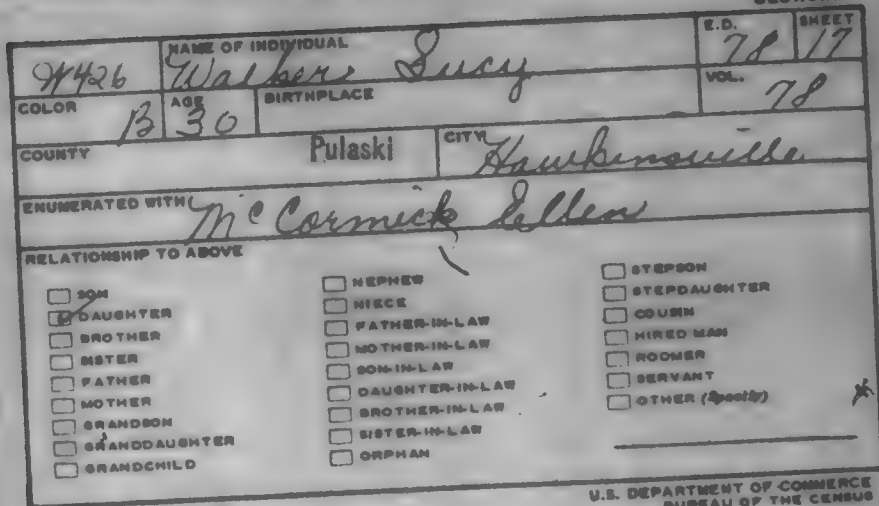 NAME OF INDIVIDUAL E.D. SHEET
W426 Walker Lucy 78 17
COLOR AGE BIRTHPLACE VOL.
B 30 78
COUNTY Pulaski CITY Hawkinsville
ENUMERATED WITH McCormick Ellen
RELATIONSHIP TO ABOVE
SON
DAUGHTER
BROTHER
SISTER
FATHER
MOTHER
GRANDSON
GRANDDAUGHTER
GRANDCHILD
NEPHEW
NIECE
FATHER-IN-LAW
MOTHER-IN-LAW
SON-IN-LAW
DAUGHTER-IN-LAW
BROTHER-IN-LAW
SISTER-IN-LAW
ORPHAN
STEPSON
STEPDAUGHTER
COUSIN
HIRED MAN
ROOMER
SERVANT
OTHER (Specify)
U.S. DEPARTMENT OF COMMERCE
BUREAU OF THE CENSUS